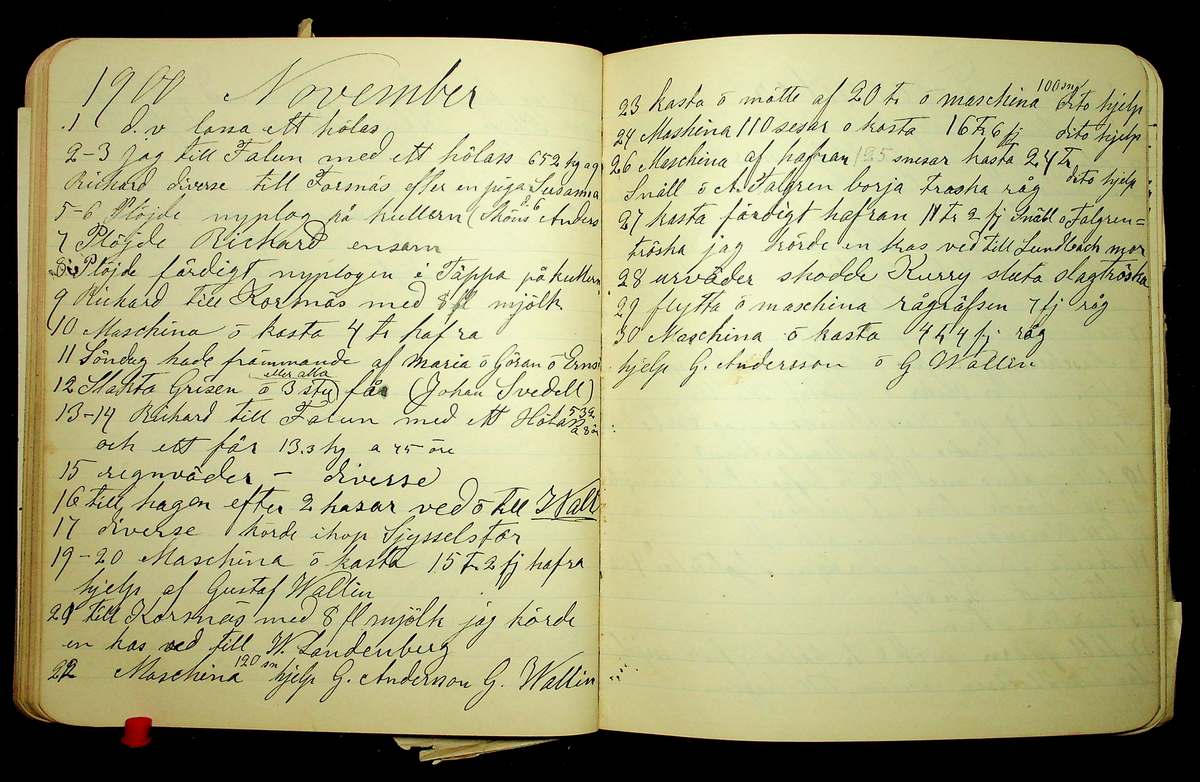 1900 November
1 d.v lassa ett hölas
2-3 jag till Falun med ett hölass 652 hg ag
Richard diverse till Formäs efter en piga Susanna
5-6 Plöjde nyplog på kullern (Anders
7 Plöjde Richard ensam
8 Plöjde färdigt nyplogen i Täppa på kullern
9 Richard till Kormäs med 8 fl mjölk
10 Maschina o kasta 4 tr hafra
11 Söndag hade frammande af Maria o Göran o Ernst
eller alla
12 Slakta Grisen o 3 sty får (Johan Svedell)
13-14 Richard till Falun med ett Hölas 532
och ett får 13.3 hg a 45 öre
15 regnväder - diverse
16 till hagen efter 2 kasar ved o till Wall
17 diverse körde ihop
19-20 Maschina o kasta 15 tr 2 fj hafra
hjelp af Gustaf Wallin
21 till Kormäs med 8 fl mjölk jag körde
en kas ved till W. Sandenberg
22 Maschina 120 sn hjelp G. Anderson G. Wallin
23 kasta o mätte af 20 tr o maschina 100 dito hjelp
24 Mashina 110 sesar o kasta 16 tr 6 fj dito hjelp
26 Maschina af hafran 125 snesar kasta 24 tr dito hjelp
Snäll o A. Falgren borja traska råg
27 kasta färdigt hafran 11 tr 2 fj Snäll o Falgren=
tröska jag körde en kas ved till Lundbäck mor
28 urväder skodde Kurry sluta slagtröska
29 flytta o maschina rågräfsen 7 fj råg
30 Maschina o kasta 4 t 4 fj råg
hjelp G. Andersson o G Wallin